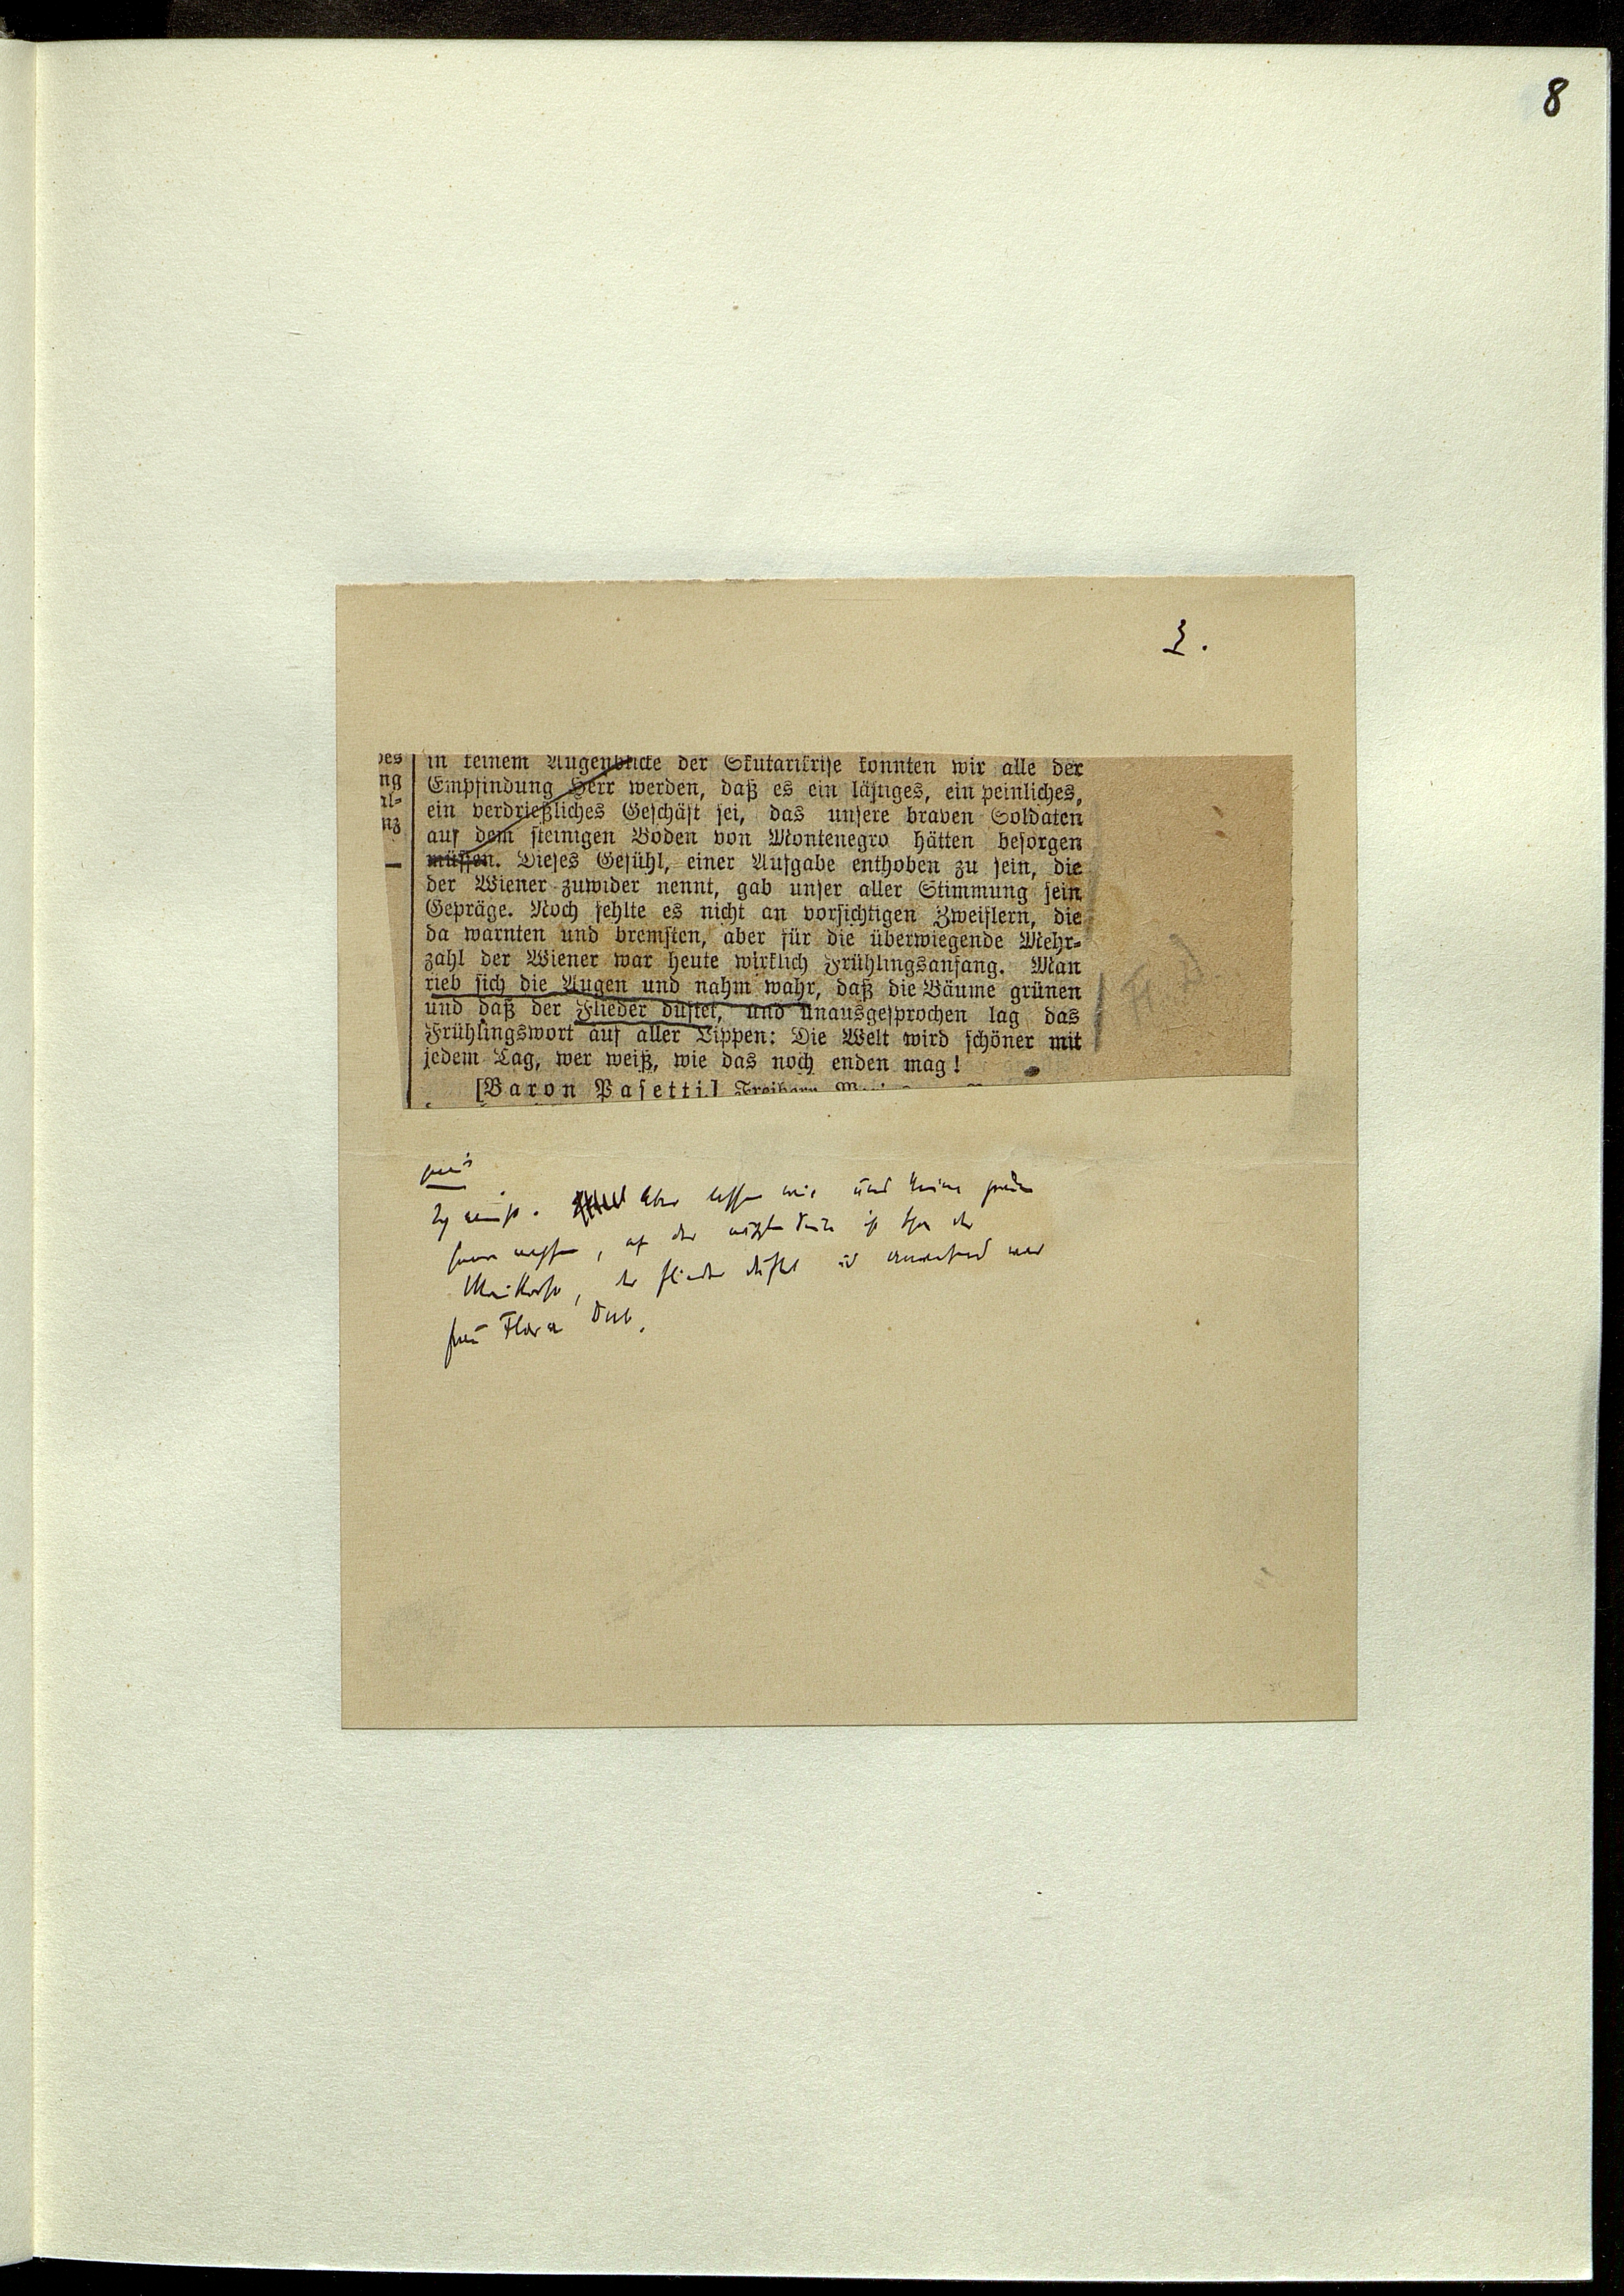 8
3.
des in keinem Augenblicke der Skutarikrise konnten wir alle der
ng Empfindung Herr werden, daß es ein lästiges, ein peinliches,
al= ein verdrießliches Geschäft sei, das unsere braven Soldaten
nz auf dem steinigen Boden von Montenegro hätten besorgen
müssen. Dieses Gefühl, einer Aufgabe enthoben zu sein, die
der Wiener zuwider nennt, gab unser aller Stimmung sein
Gepräge. Noch fehlte es nicht an vorsichtigen Zweiflern, die
da warnten und bremsten, aber für die überwiegende Mehr=
zahl der Wiener war heute wirklich Frühlingsanfang. Man
rieb sich die Augen und nahm wahr, daß die Bäume grünen
und daß der Flieder duftet, und unausgesprochen lag das
Frühlingswort auf aller Lippen: Die Welt wird schöner mit
jedem Tag, wer weiß, wie das noch enden mag!
[Baron Pasetti.] Freiherr
Aber lassen wir uns keine grauen
Haare wachsen, auf der nächsten Seite ist schon der
Maikorso, der Flieder duftet und anwesend war
Frau Flora Dub.